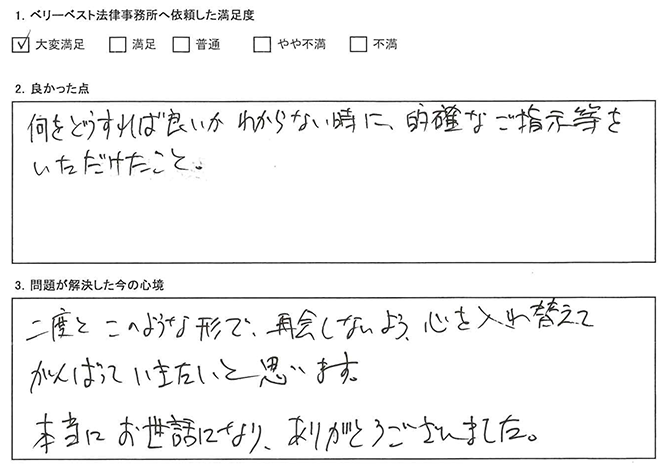 1. ベリーベスト法律事務所へ依頼した満足度
☑ 大変満足 □ 満足 □ 普通 □ やや不満 □ 不満
2. 良かった点
何をどうすれば良いか わからない時に、的確なご指示等を
いただけたこと。
3. 問題が解決した今の心境
二度と このような形で、再会しないよう、心を入れ替えて
がんばって いきたいと 思います。
本当に お世話になり、ありがとうございました。